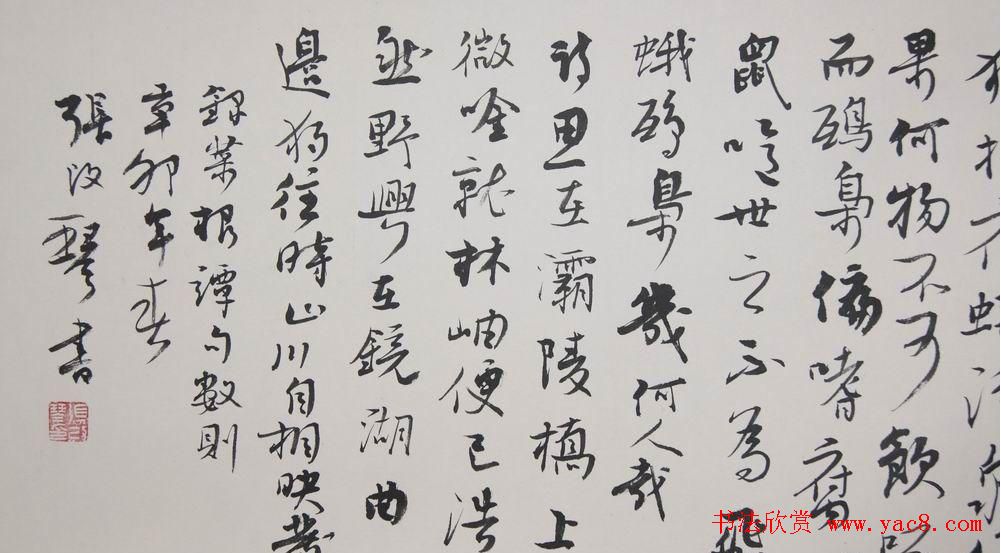 果何物不可飲啄
而鴟梟偏嗜腐
鼠噫世之不為飛
蛾鴟梟幾何人哉
詩思在灞陵橋上
微吟就林岫便已浩
然野興在鏡湖曲
邊獨往時山川自相映發
錄菜根譚句數則
辛卯年春
張改琴書
书法欣赏 www.yac8.com